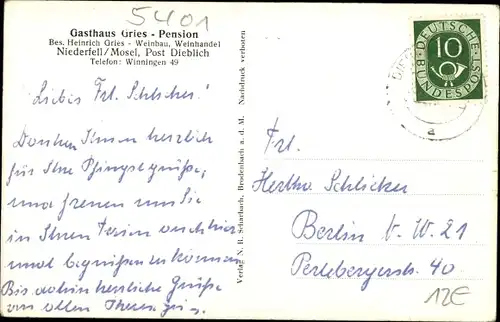 5401
Gasthaus Gries - Pension
Bes. Heinrich Gries - Weinbau, Weinhandel
Niederfell/Mosel, Post Dieblich
Telefon: Winningen 49
Liebes Frl. Schlicker!
Danken Ihnen herzlich
für Ihre Pfingstgrüße,
und freuen uns Sie
in Ihren Ferien auch hier
und begrüßen zu können
Bis dahin herzliche Grüße
von allen
Verlag N. R. Scharbach, Brodenbach a. d. M. Nachdruck verboten
DEUTSCHE
BUNDESPOST
10
a
Frl.
Hertha Schlicker
Berlin N.W. 21
Perlebergerstr. 40
12E